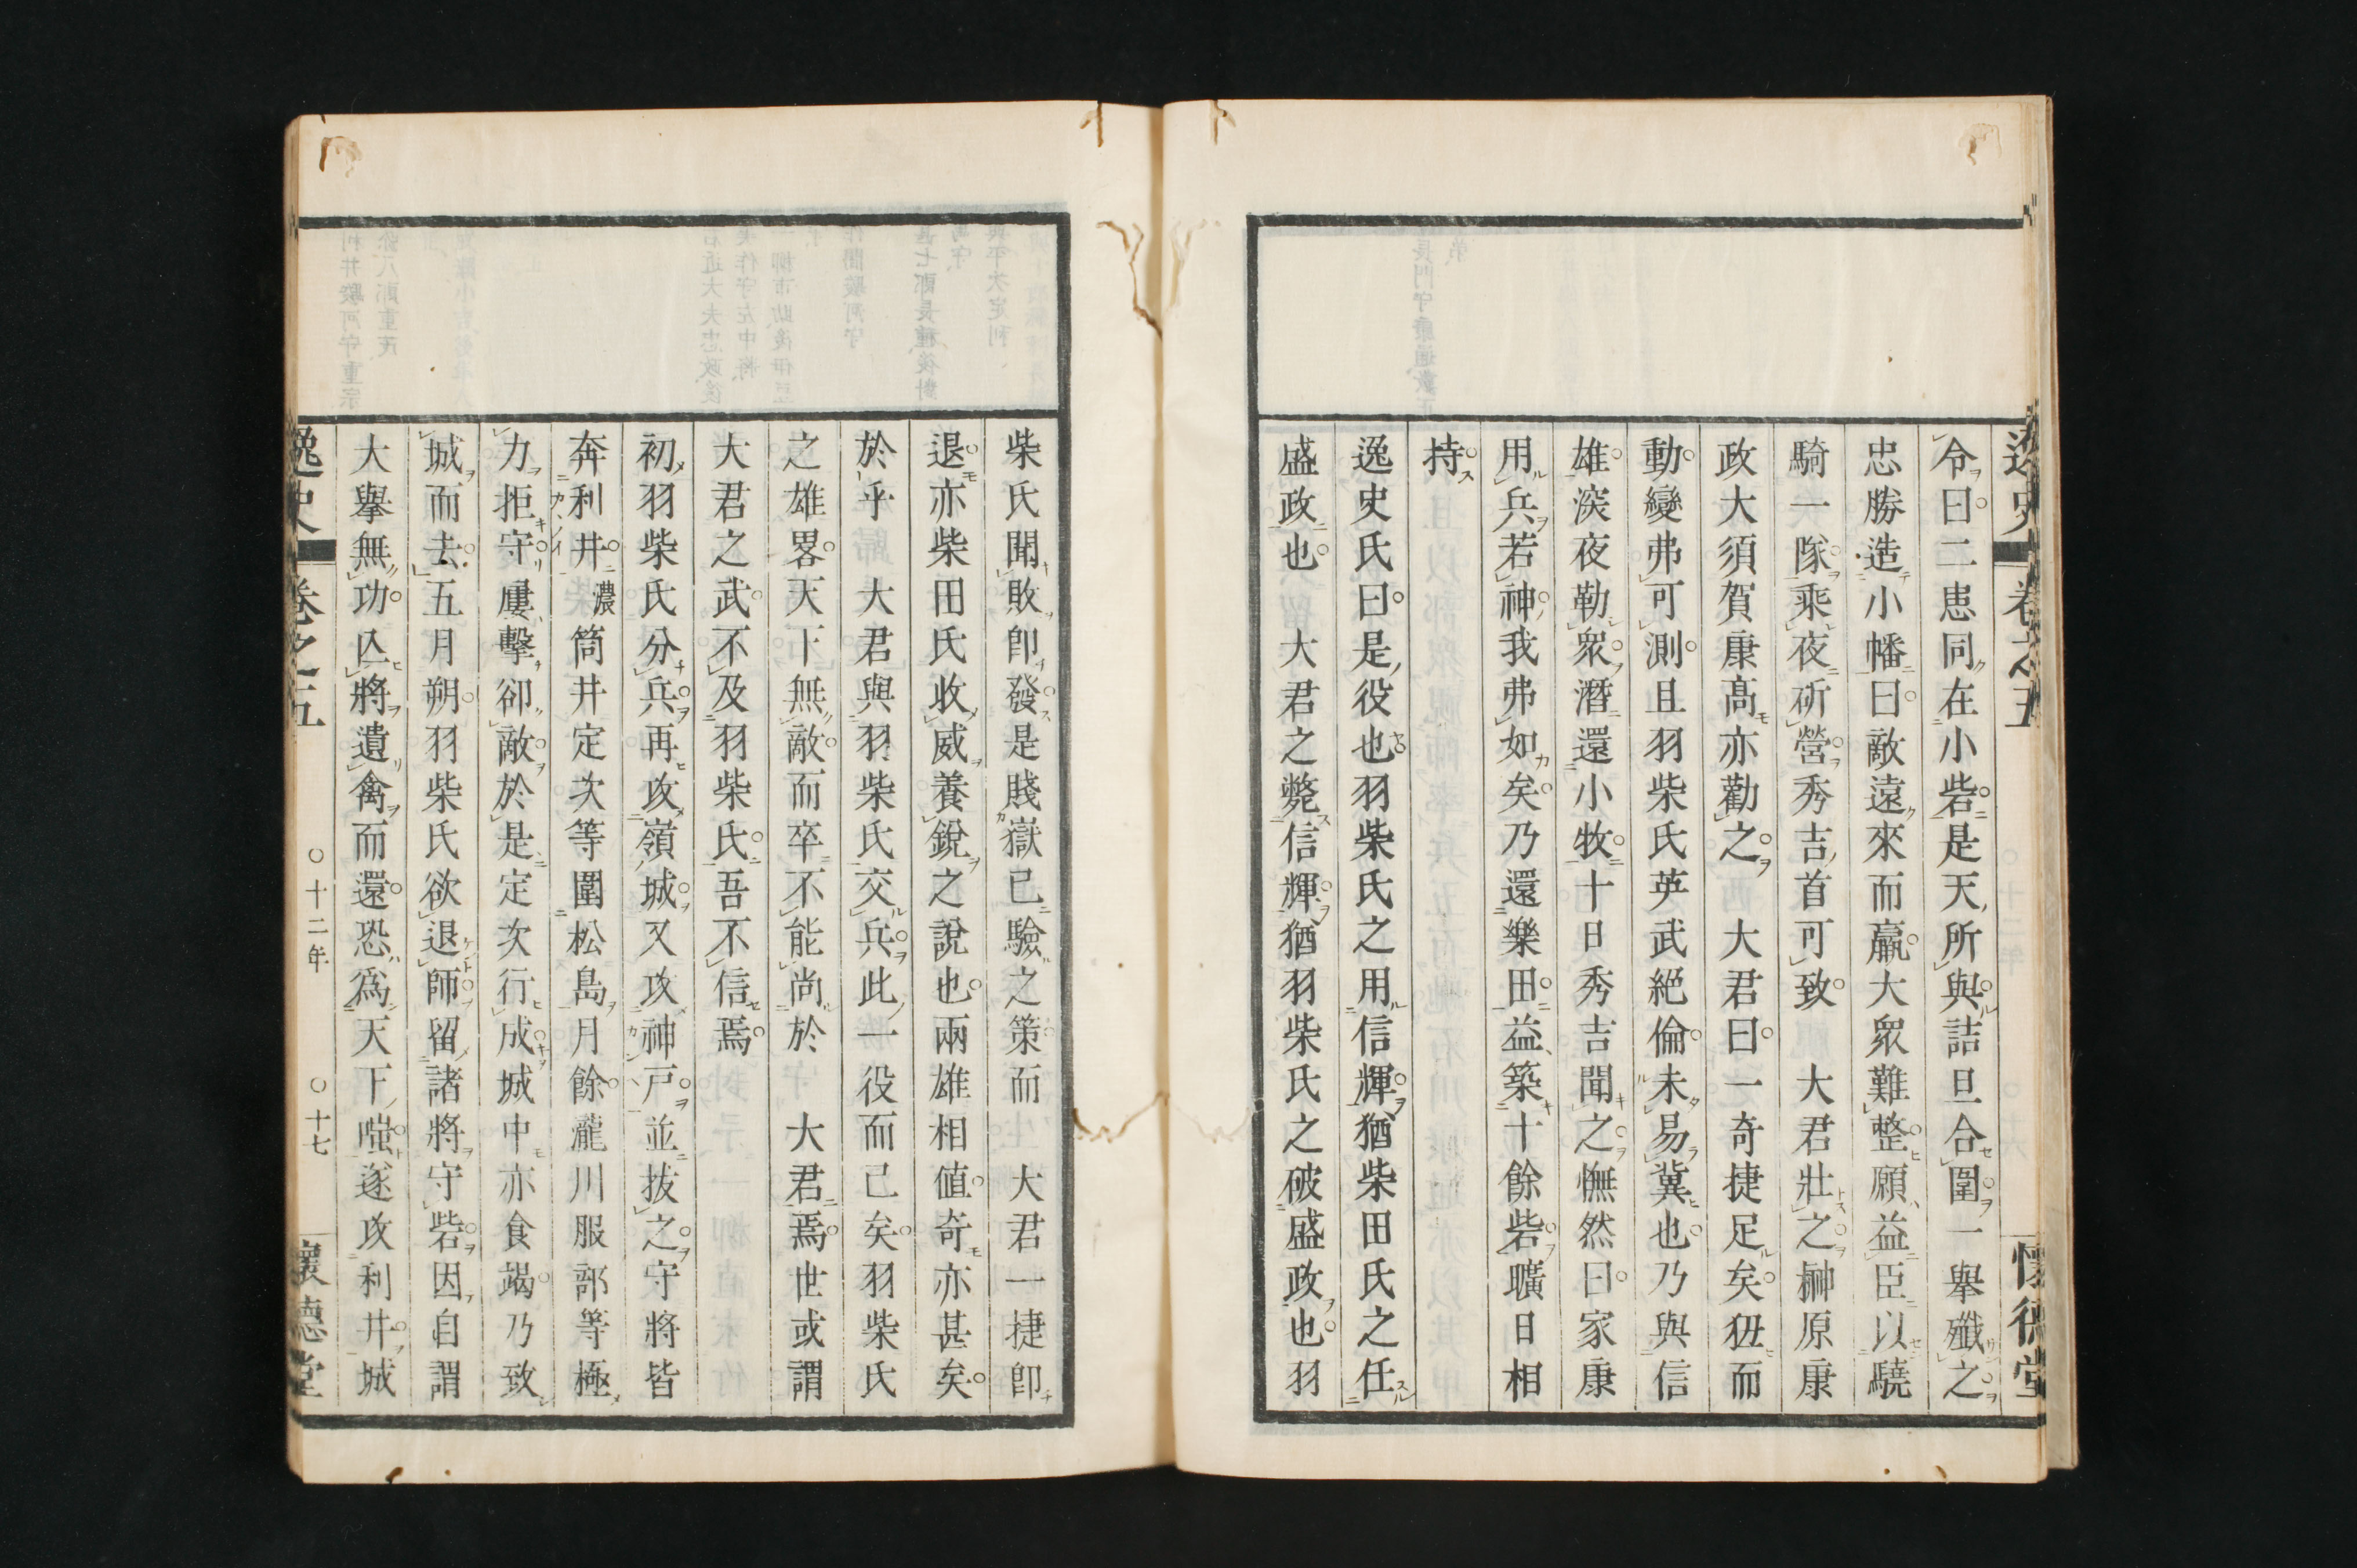 令曰二恚同在小砦是天所與詰旦合圍一擧殲之
忠勝造小幡曰敵遠來而羸大衆難整願益臣以驍
騎一隊乘夜斫營秀吉首可致 大君壯之榊原康
政大須賀康高亦勸之 大君曰一奇捷足矣狃而
動變弗可測且羽柴氏英武絕倫未易冀也乃與信
雄深夜勒衆潛還小牧十日秀吉聞之憮然曰家康
用兵若神我弗如矣乃還樂田益築十餘砦曠日相
持
逸史氏曰是役也羽柴氏之用信輝猶柴田氏之任
盛政也 大君之斃信輝猶羽柴氏之破盛政也羽
柴氏聞敗卽發是賤嶽已驗之策而 大君一捷卽
退亦柴田氏收威養銳之說也兩雄相値奇亦甚矣
於乎 大君與羽柴氏交兵此一役而已矣羽柴氏
之雄畧天下無敵而卒不能尚於 大君焉世或謂
大君之武不及羽柴氏吾不信焉
初羽柴氏分兵再攻嶺城又攻神戸並拔之守將皆
奔利井濃筒井定次等圍松島月餘瀧川服部等極
力拒守屢擊卻敵於是定次行成城中亦食竭乃致
城而去五月朔羽柴氏欲退師留諸將守砦因自謂
大擧無功亾將遺禽而還恐爲天下嗤遂攻利井城
逸史 卷之五 ○十二年 ○十七 懷德堂